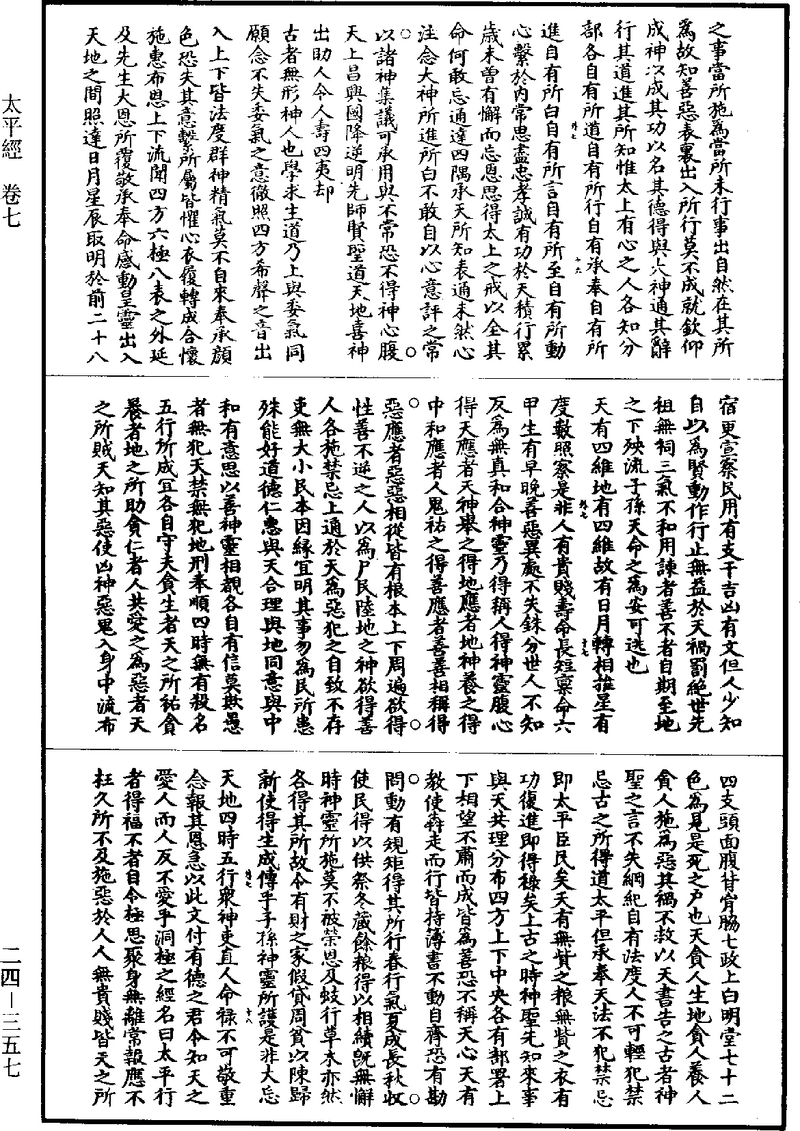 太平經 卷七
二四—三五七
之事當所施為當所未行事出自然在其所
為故知善惡表裏出入所行莫不成就欽仰
成神以成其功以名其德得與大神通其辭
行其道進其所知惟太上有心之人各知分
部各自有所道自有所行自有承奉自有所
進自有所白自有所言自有所至自有所動
心繫於內常思盡忠孝誠有功於天積行累
歲未曾有懈而忘恩思得太上之戒以全其
命何敢忘通達四隅承天所知表通未然心
注念大神所進所白不敢自以心意評之常
以諸神集議可承用與不常恐不得神心腹
天上昌興國降逆明先師賢聖道天地喜神
出助人令人壽四夷却
古者無形神人也學求生道乃上與委氣同
願念不失委氣之意徹照四方希聲之音出
入上下皆法度群神精氣莫不自來奉承顏
色恐失其意繫所屬皆懼心衣履轉成合懷
施惠布恩上下流聞四方六極八表之外延
及先生大恩所覆敬承奉命感動皇靈出入
天地之間照達日月星辰取明於前二十八
宿更宣察民用有支干吉凶有文但人少知
自以為賢動作行止無益於天禍罰絕世先
祖無祠三氣不和用諫者善不者自期至地
之下殃流子孫天命之為安可逃也
天有四維地有四維故有日月轉相推星有
度數照察是非人有貴賤壽命長短稟命六
甲生有早晚善惡異處不失銖分世人不知
反為無真和合神靈乃得稱人得神靈腹心
得天應者天神舉之得地應者地神養之得
中和應者人鬼祐之得善應者善善相稱得
惡應者惡惡相從皆有根本上下周遍欲得
性善不逆之人以為戶民陸地之神欲得善
人各施禁忌上通於天為惡犯之自致不存
吏無大小民本因緣宜明其事勿為民所患
殊能好道德仁惠與天合理與地同意與中
和有意思以善神靈相覩各自有信莫欺愚
者無犯天禁無犯地刑奉順四時無有殺名
五行所成宜各自守夫貪生者天之所祐貪
養者地之所助貪仁者人共愛之為惡者天
之所賊天知其惡使凶神惡鬼入身中流布
四支頭面腹背胷脇七政上白明堂七十二
色為見是死之戶也天貪人生地貪人養人
貪人施為惡其禍不救以天書告之古者神
聖之言不失綱紀自有法度人不可輕犯禁
忌古之所得道太平但承奉天法不犯禁忌
即太平臣民矣天有無貲之粮無貲之衣有
功復進即得祿矣上古之時神聖先知來事
與天共理分布四方上下中央各有部署上
下相望不肅而成皆為善恐不稱天心天有
教使犇走而行皆持簿書不動自齊恐有勘
問動有規矩得其所行春行氣夏成長秋收
使民得以供祭冬藏餘粮得以相續既無懈
時神靈所施莫不被榮恩及蚑行草木亦然
各得其所故令有財之家假貸周貧以陳歸
新使得生成傳乎子孫神靈所護是非大忘
天地四時五行衆神吏直人命祿不可敬重
念報其恩急以此文付有德之君令知天之
愛人而人反不愛乎洞極之經名曰太平行
者得福不者自令極思聚身無離常報應不
枉久所不及施惡於人人無貴賤皆天之所